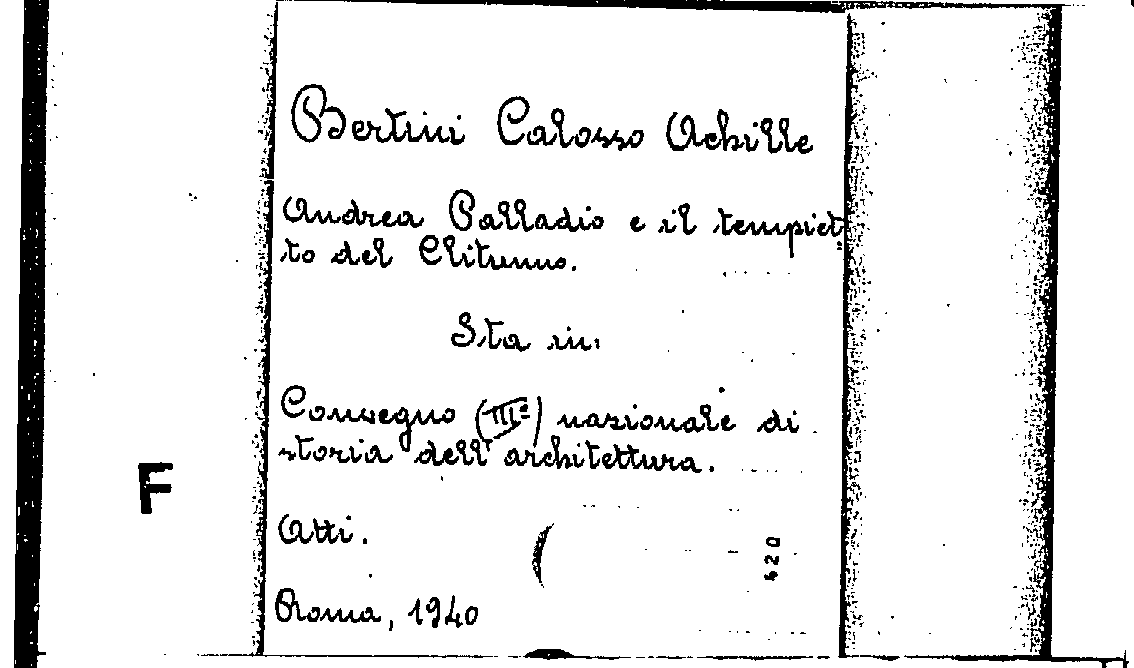 Bertini Calosso Achille
Andrea Palladio e il tempiet-
to del Clitunno.
Sta in:
Convegno (IIIº) nazionale di
storia dell'architettura.
F
Atti.
420
Roma, 1940